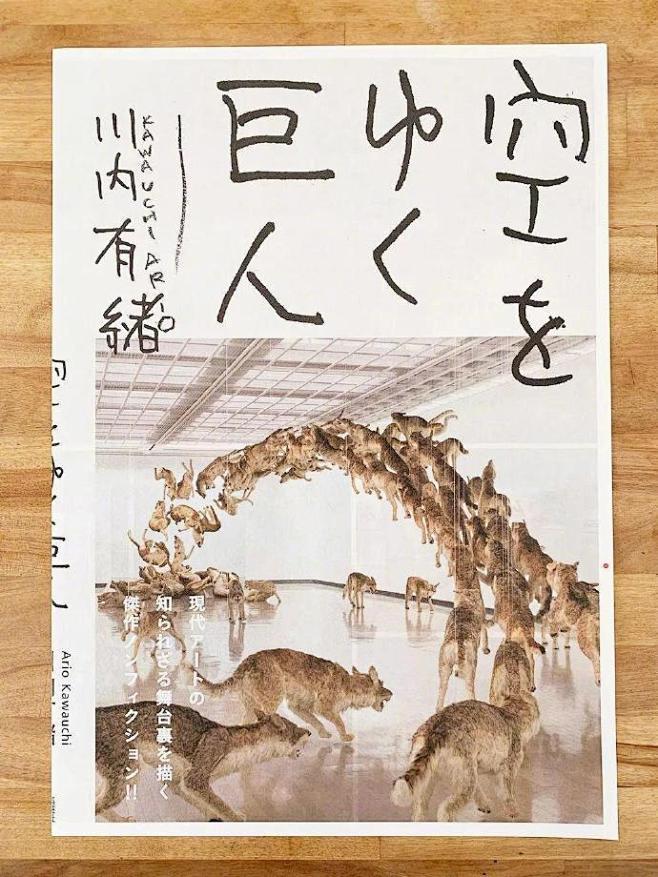 空を
ゆく
巨人
川内有緒
KAWAUCHI ARIO
現代アートの
知られざる舞台裏を描く
傑作ノンフィクション!!
Ario Kawauchi